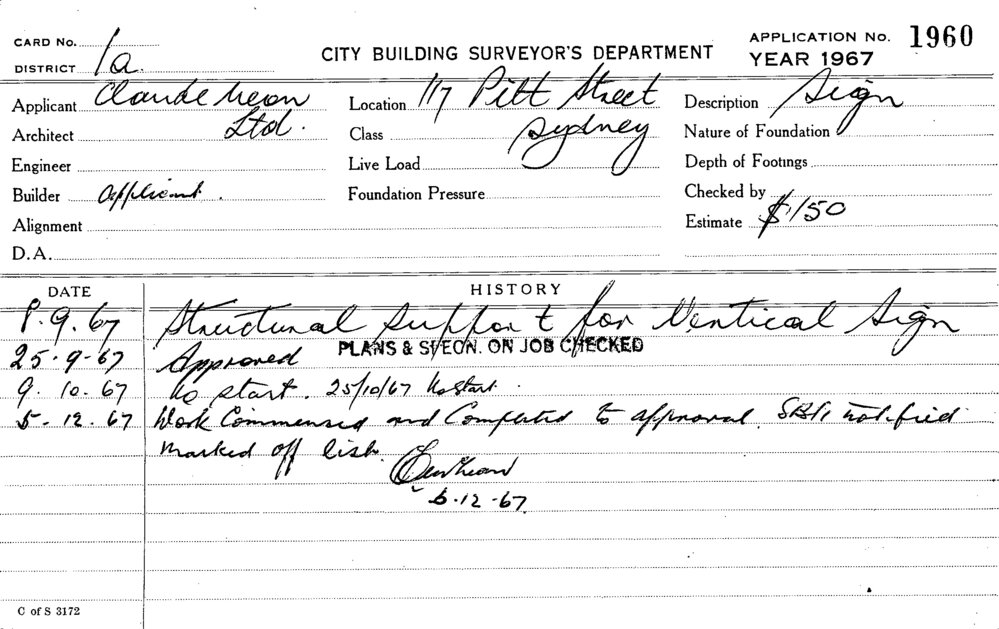 CARD No. 1a
DISTRICT
CITY BUILDING SURVEYOR'S DEPARTMENT
APPLICATION No. 1960
YEAR 1967
Applicant Claude Neon Ltd.
Location 117 Pitt Street Sydney
Description Sign
Architect
Class
Nature of Foundation
Engineer
Live Load
Depth of Footings
Builder applicant.
Foundation Pressure
Checked by
Alignment
Estimate $150
D.A.
DATE HISTORY
8.9.67 Structural support for Vertical Sign
25.9.67 Approved PLANS & SPECN. ON JOB CHECKED
9.10.67 No start. 25/10/67 No Start.
5.12.67 Work Commenced and Completed to approval. notified
marked off list.
6.12.67
C of S 3172